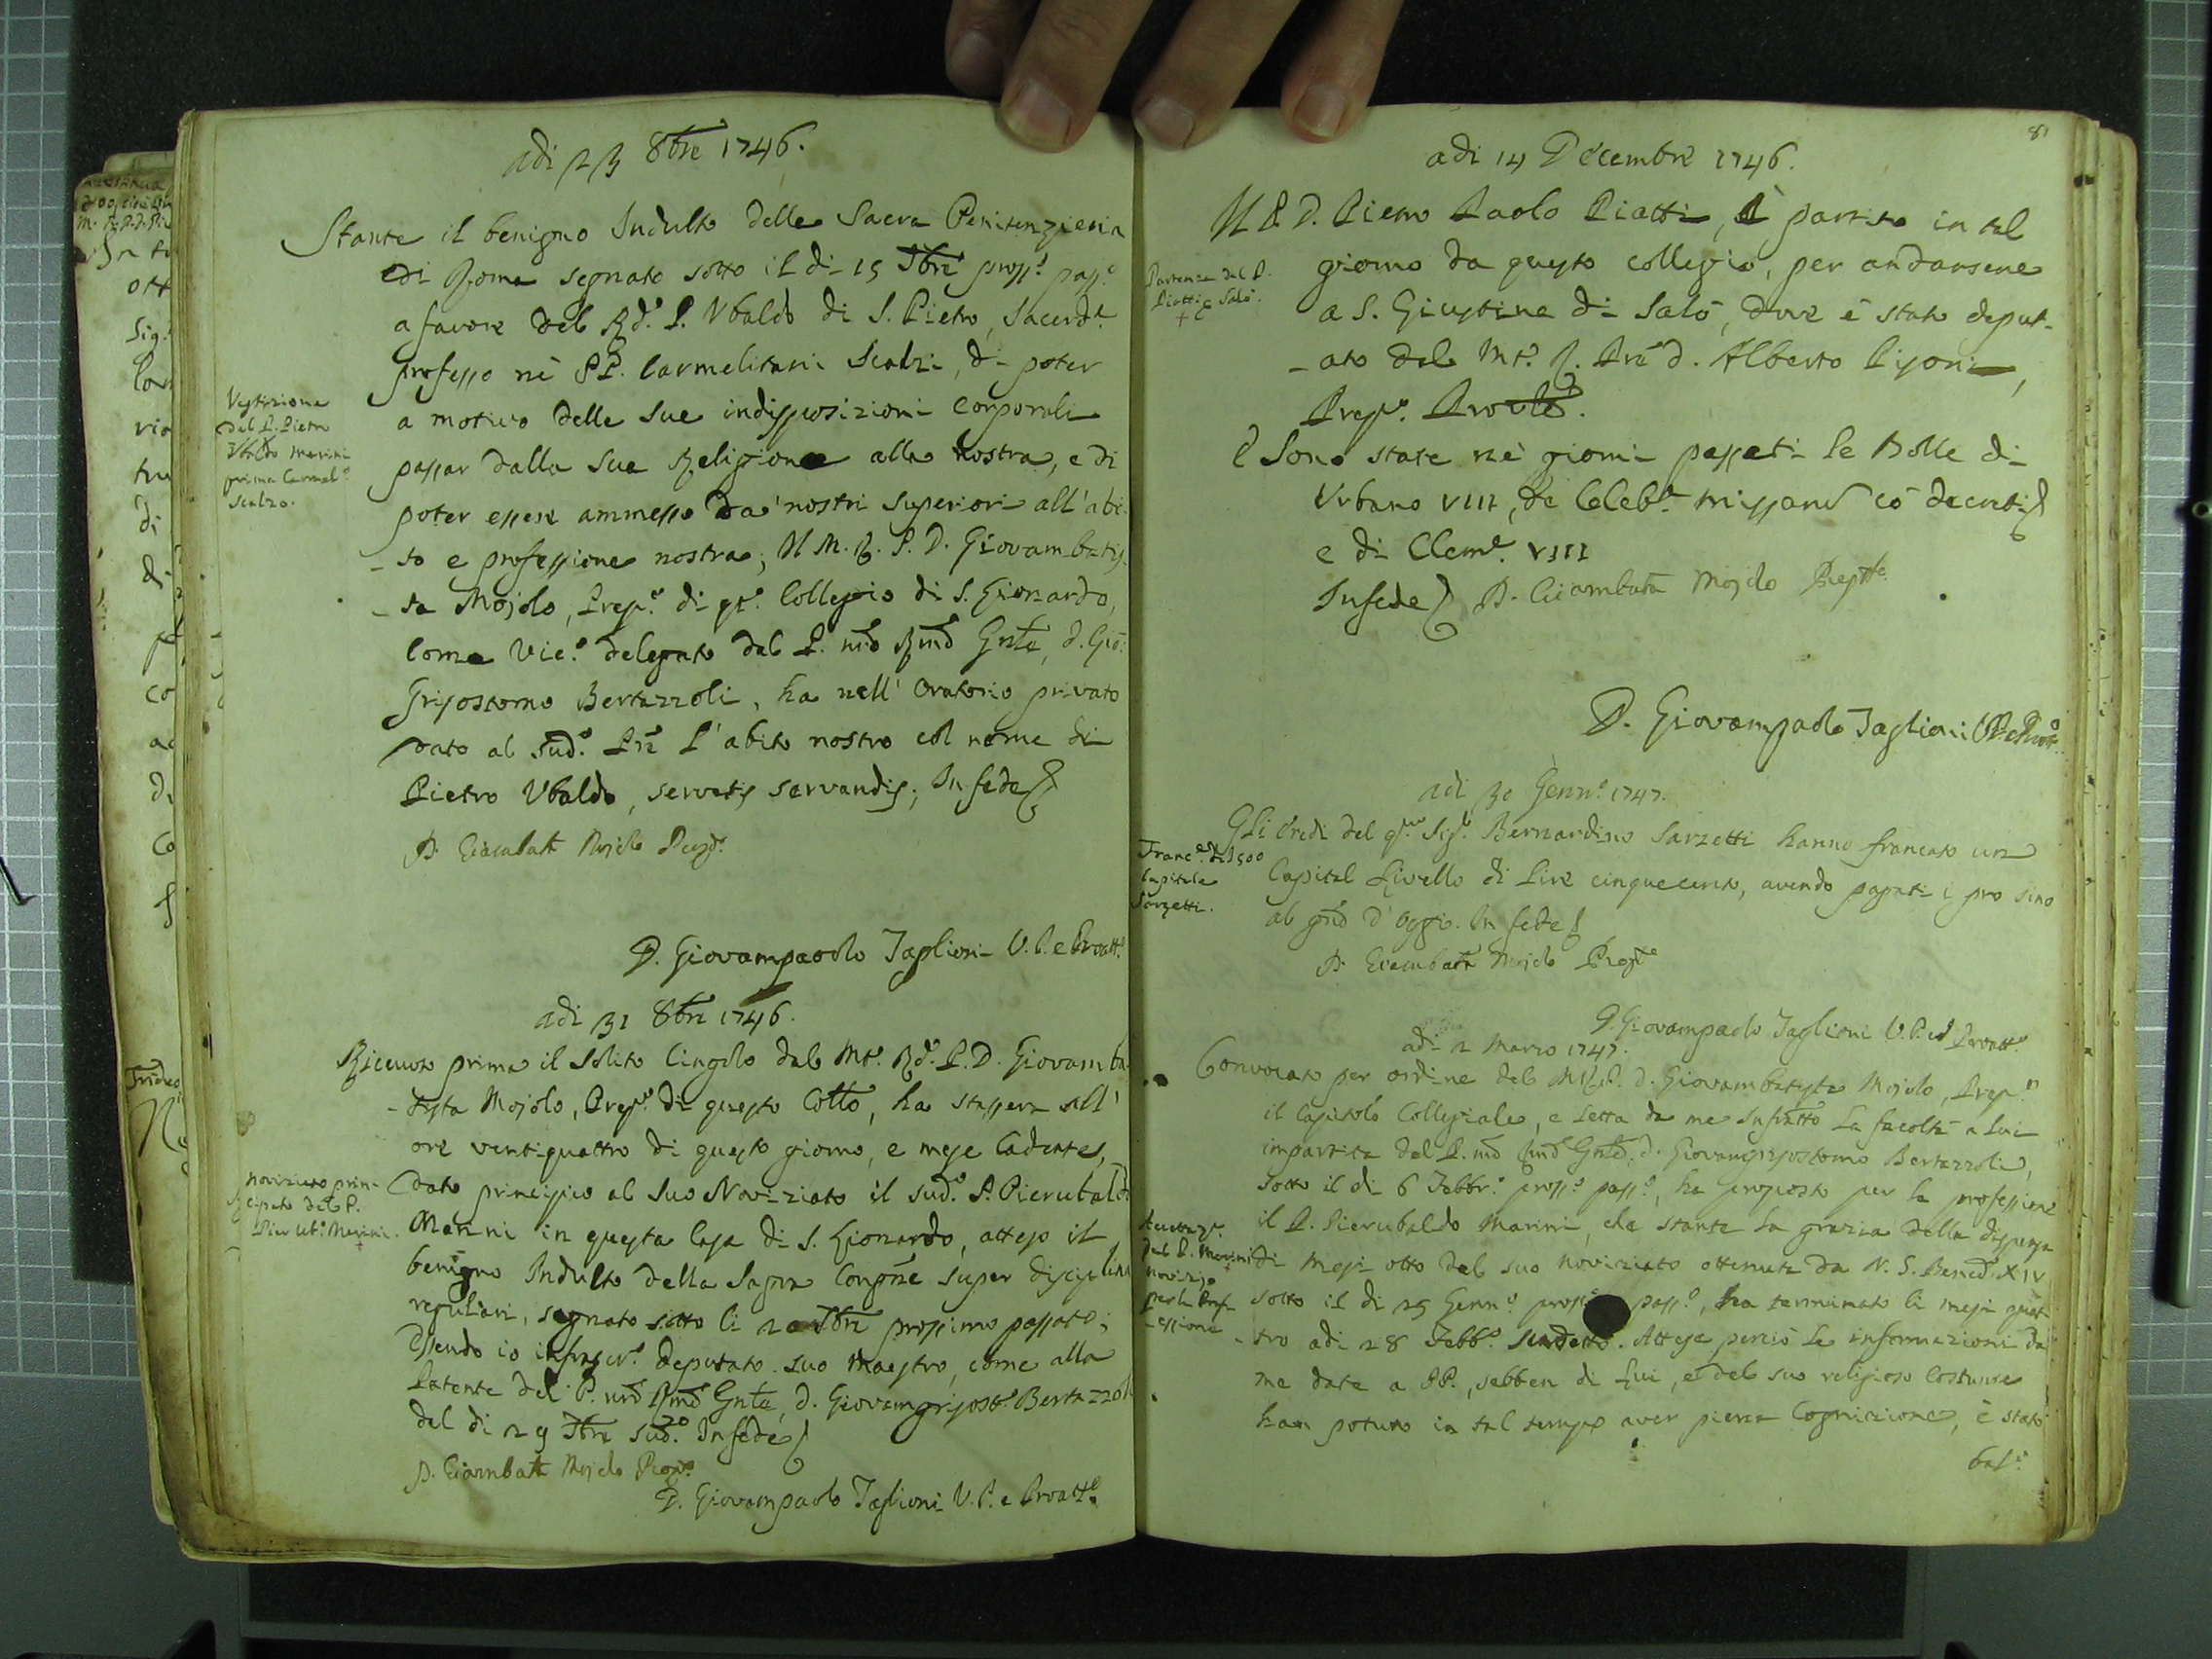 adi 23 8bre 1746.
Stante il benigno Indulto della Sacra Penitenzieria
di Roma segnato sotto il di 15 7bre pross.o pass.o
a favore del Rd.o P. Ubaldo di S. Pietro, Sacerd.e
professo ne' PP. Carmelitani Scalzi, di poter
a motivo delle sue indisposizioni corporali
passar dalla sua Religione alla nostra, e di
poter essere ammesso da' nostri superiori all'abi-
-to e professione nostra; Il M. R. P. D. Giovambatis-
-ta Mojolo, Prep.o di qt.o Collegio di S. Lionardo,
come Vic.o delegato dal P. nrõ Rmõ Gnle, d. Gio:
Grisostomo Bertazzoli, ha nell' Oratorio privato
dato al sud.o Pre l'abito nostro col nome di
Pietro Ubaldo, servatis servandis; In fede
D. Giambatta Mojolo Prep.o
D. Giovampaolo Taglioni V. P. e Proatt.o
Vestizione
del P. Pietro
Ubaldo Marini
prima Carmel.o
Scalzo.
adi 31 8bre 1746.
Ricevuto prima il solito Cingolo dal Mt.o Rd.o P. D. Giovamba-
-tista Mojolo, Prep.o di questo Collo, ha stassera all'
ore ventiquattro di questo giorno, e mese cadente,
dato principio al suo Noviziato il sud.o P. Pierubaldo
Marini in questa Casa di S. Lionardo, atteso il
benigno Indulto della Sagra Congne super disciplina
regulari, segnato sotto li 20 7bre prossimo passato;
Essendo io infrascr.o deputato suo Maestro, come alla
Patente del P. nrõ Rmõ Gnle, d. Giovamgrisost.o Bertazzoli
del di 29 7bre sud.o In fede
D. Giambatta Mojolo Prep.o
D. Giovampaolo Taglioni V. P. e Proatt.o
Noviziato prin-
cipato dal P.
Pier Ub.o Marini.
81
adi 14 Decembre 1746.
Il P. D. Pietro Paolo Piatti, è partito in tal
giorno da questo collegio, per andarsene
a S. Giustina di Salò, dove è stato deput-
-ato dal Mt.o R. Pre d. Alberto Pisoni,
Prep.o Provle.
E Sono state ne' giorni passati le Bolle di
Urbano VIII, de Celeb.e missarum co' decreti
e di Clem.e VIII
In fede D. Giambatta Mojolo Prep.to
D. Giovampaolo Taglioni V.P. e Proatt.o
Partenza del P.
Piatti a Salò.
adi 30 Genn.o 1747.
Gli Eredi del q.m Sig.r Bernardino Sarzetti hanno francato un
Capital Livello di Lire cinquecento, avendo pagati i pro sino
al gno d'oggi. In fede
D. Giambatta Mojolo Prep.to
D. Giovampaolo Taglioni V. P. ed Proatt.o
Franc.e di L 500
Capitale
Sarzetti.
adi 2 Marzo 1747.
Convocato per ordine del M.R.P. d. Giovambatista Mojolo, Prep.o
il Capitolo Collegiale, e letta da me Infratto la facoltà a lui
impartita dal P. nrõ Rmõ Gnle, d. Giovamgrisostomo Bertazzoli,
sotto il di 6 Febbr.o pross.o pass.o, ha proposto per la professione
il P. Pierubaldo Marini, che stante la grazia della dispensa
di mesi otto del suo noviziato ottenuta da N. S. Bened.o XIV
sotto il di 25 Genn.o pross.o pass.o, ha terminato li mesi quat-
-tro adi 28 Febb.o sudetto. Attese perciò le informazioni da
me date a PP., sebben di Lui, e del suo religioso costume
han potuto in tal tempo aver piena cognizione, è stato
bal.
del P. Marini
novizio
per la Prof-
-essione